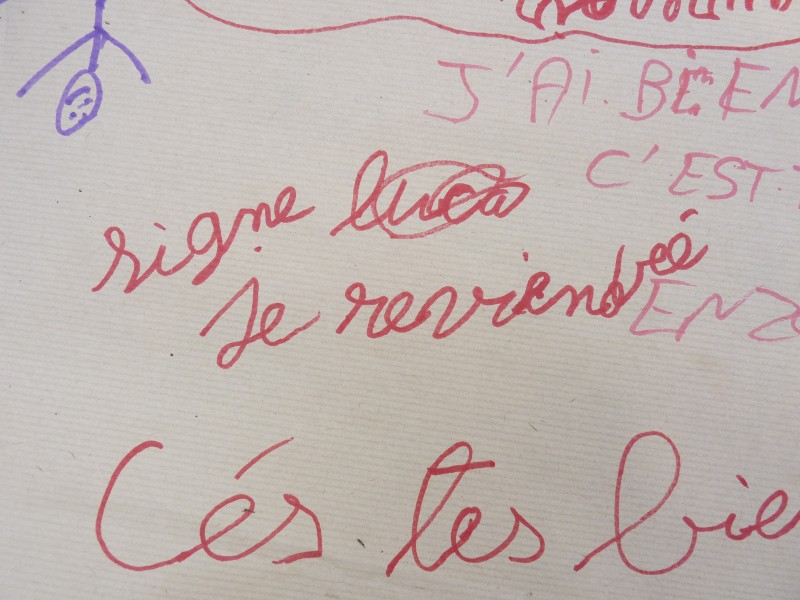 J'AI BÉEN
C'EST
signe luca
je reviendreé
ENZO
Cés tes bien